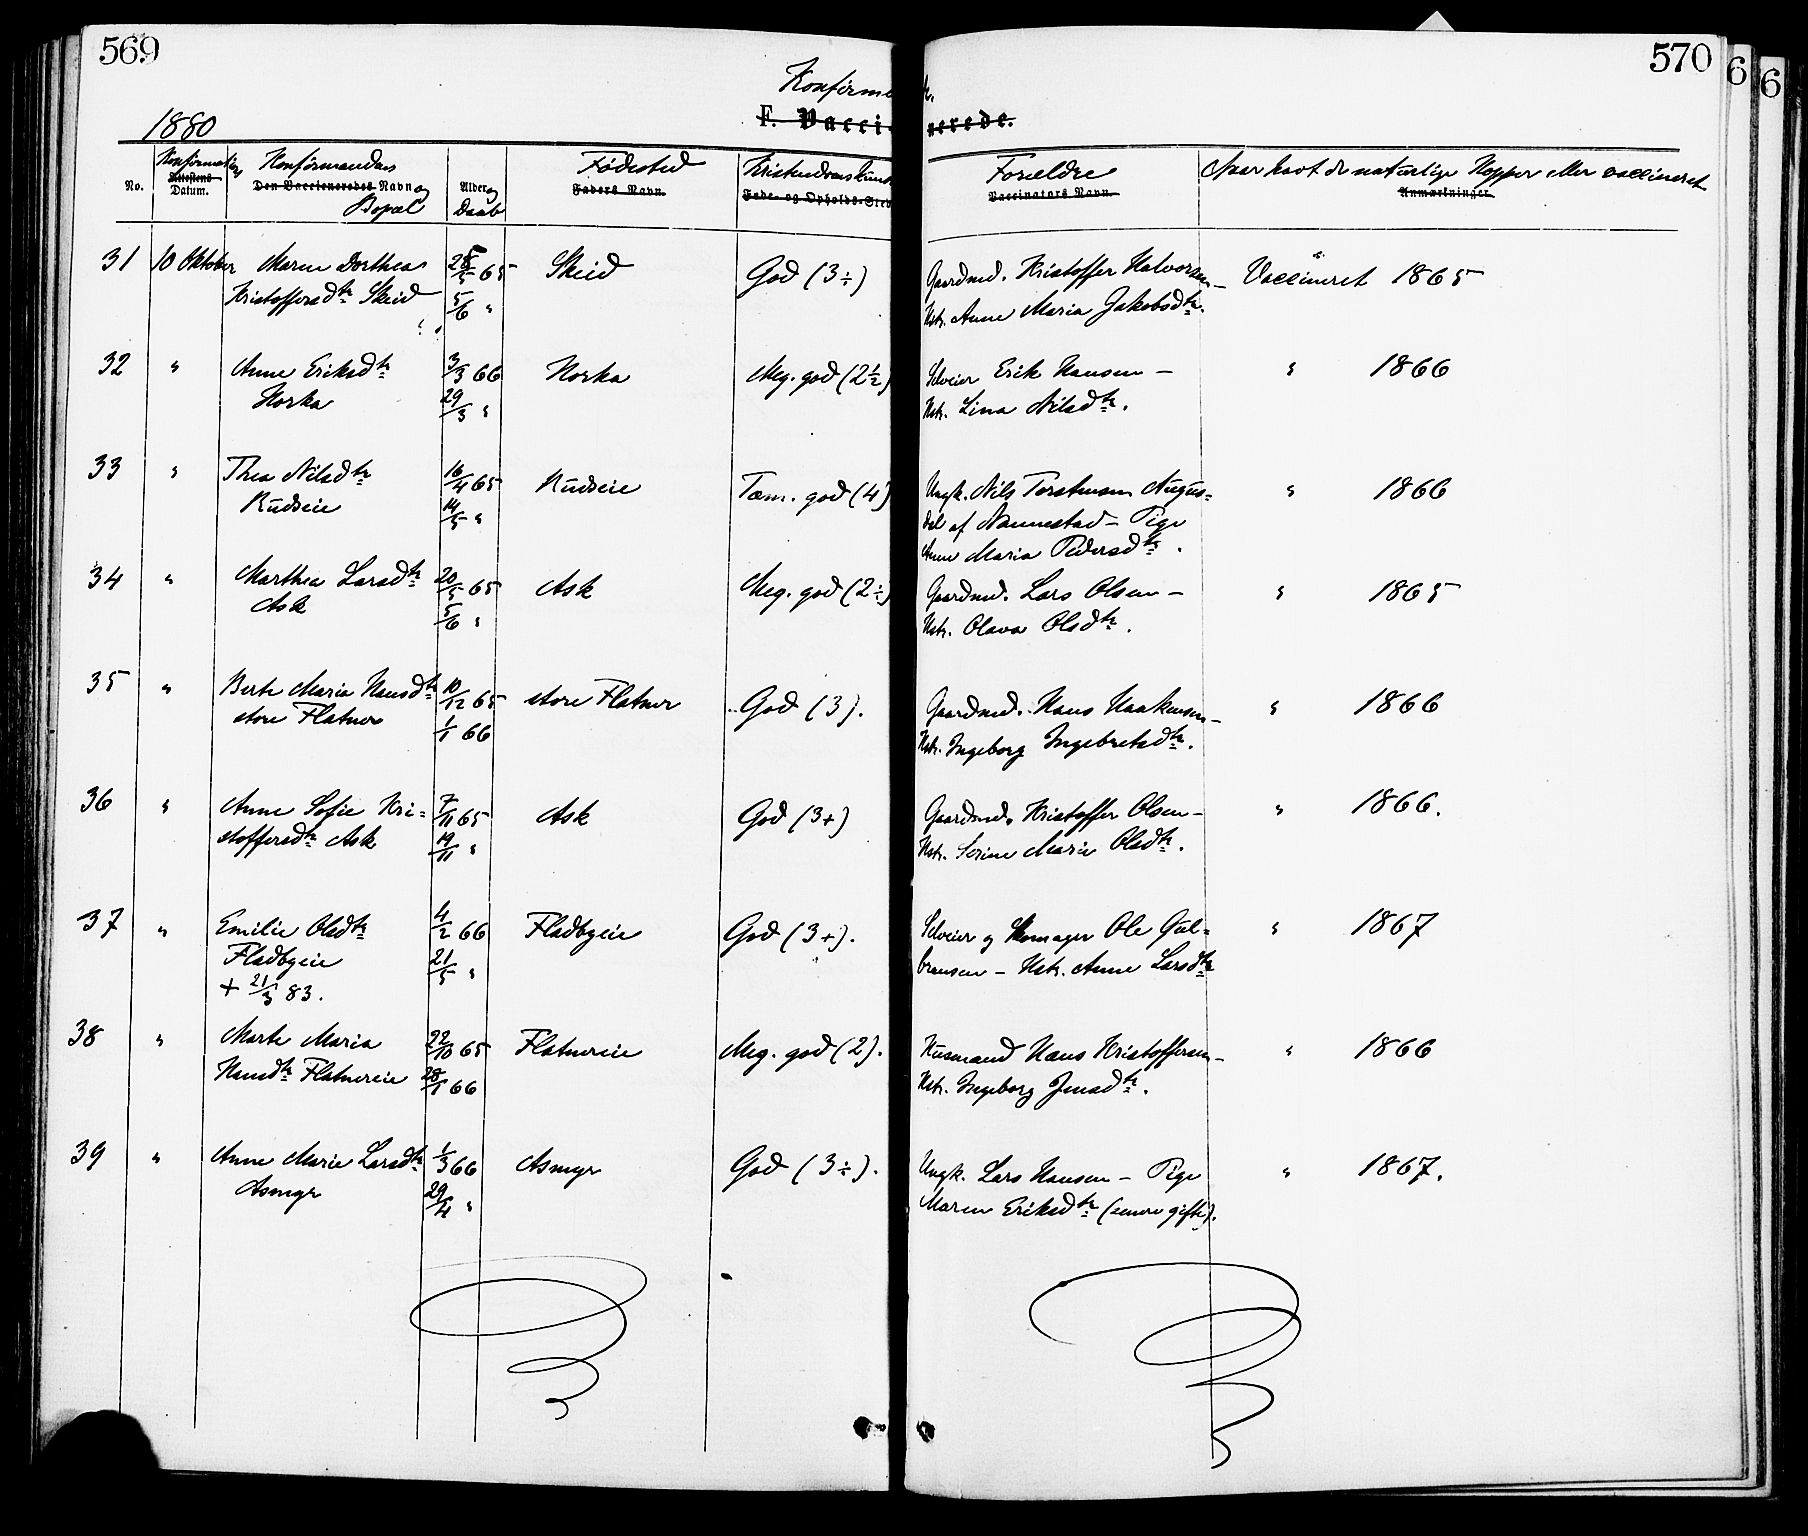 569
570
6
6
Konfirme
r.
F. Vacci
nerede.
1880
No.
Konfirmations
Attestens
Datum.
Konfirmandens
Den Vaccineredes Navn og
Bopæl
Alder og
Daab
Fødested
Faders Navn.
Kristendomskunds
Føde- og Opholds-Sted
Forældre
Vaccinators Navn.
Naar havt de naturlige Kopper eller vaccineret
Anmærkninger.
31 10 Oktober Maren Dorthea 25/5 65 Skeid God (3÷) Gaardmd. Kristoffer Halvorsen – Vaccineret 1865
Kristoffersdtr Skeid 5/6 " Hstr. Anne Maria Jakobsdtr.
32 " Anne Eriksdtr 3/3 66 Horka Meg. god (2½) Selveier Erik Hansen – " 1866
Horka 29/3 " Hstr. Lina Nilsdtr.
33 " Thea Nilsdtr 16/4 65 Rudseie Tem. god (4) Ungk. Nils Torstensen Augus=
Rudseie 14/5 " dal af Nannestad – Pige " 1866
Anne Maria Pedersdtr.
34 " Marthea Larsdtr 20/5 65 Ask Meg. god (2÷) Gaardmd. Lars Olsen – " 1865
Ask 5/6 " Hstr. Olava Olsdtr.
35 " Berte Maria Hansdtr 10/12 65 store Flatner God (3). Gaardmd. Hans Haakensen – " 1866
store Flatner 1/1 66 Hstr. Ingeborg Ingebretsdtr.
36 " Anne Sofie Kri= 7/11 65 Ask God (3+) Gaardmd. Kristoffer Olsen – " 1866.
stoffersdtr Ask 19/11 " Hstr. Serine Marie Olsdtr.
37 " Emilie Olsdtr 4/2 66 Fladbyeie God (3+). Selveier og Skomager Ole Gul= " 1867
Fladbyeie 21/5 " bransen – Hstr. Anne Larsdtr
+ 21/3 83.
38 " Marte Maria 22/10 65 Flatnereie Meg. god (2). Husmand Hans Kristoffersen – " 1866
Hansdtr Flatnereie 28/1 66 Hstr. Ingeborg Jensdtr.
39 " Anne Marie Larsdtr 1/3 66 Asmyr God (3÷). Ungk. Lars Hansen – Pige " 1867.
Asmyr 29/4 " Maren Eriksdtr (senere gifte).